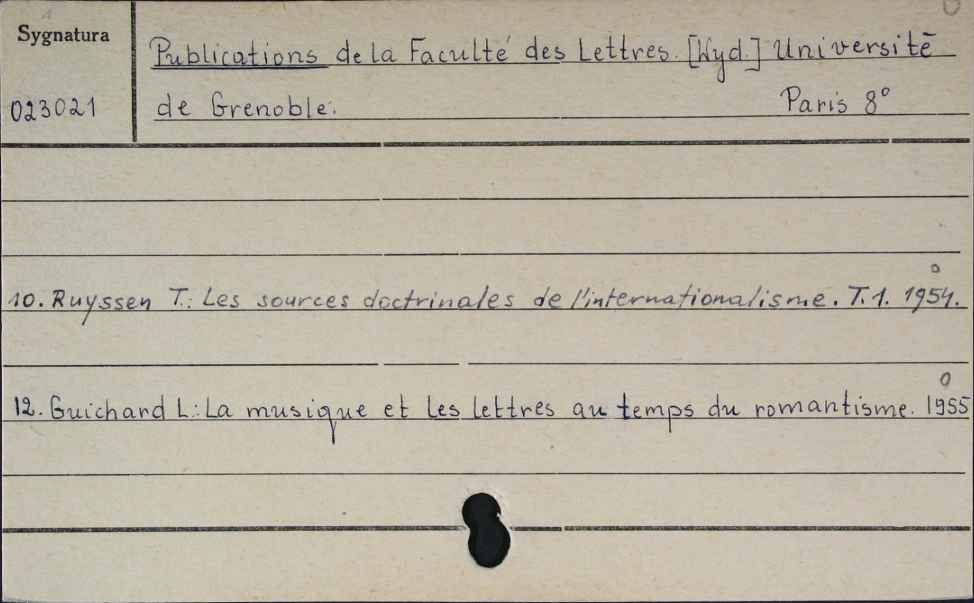 Sygnatura
Publications de la Faculté des Lettres. [Wyd.] Université
023021
de Grenoble. Paris 8°
10. Ruyssen T.: Les sources doctrinales de l'internationalisme. T. 1. 1954.
12. Guichard L.: La musique et les lettres au temps du romantisme. 1955